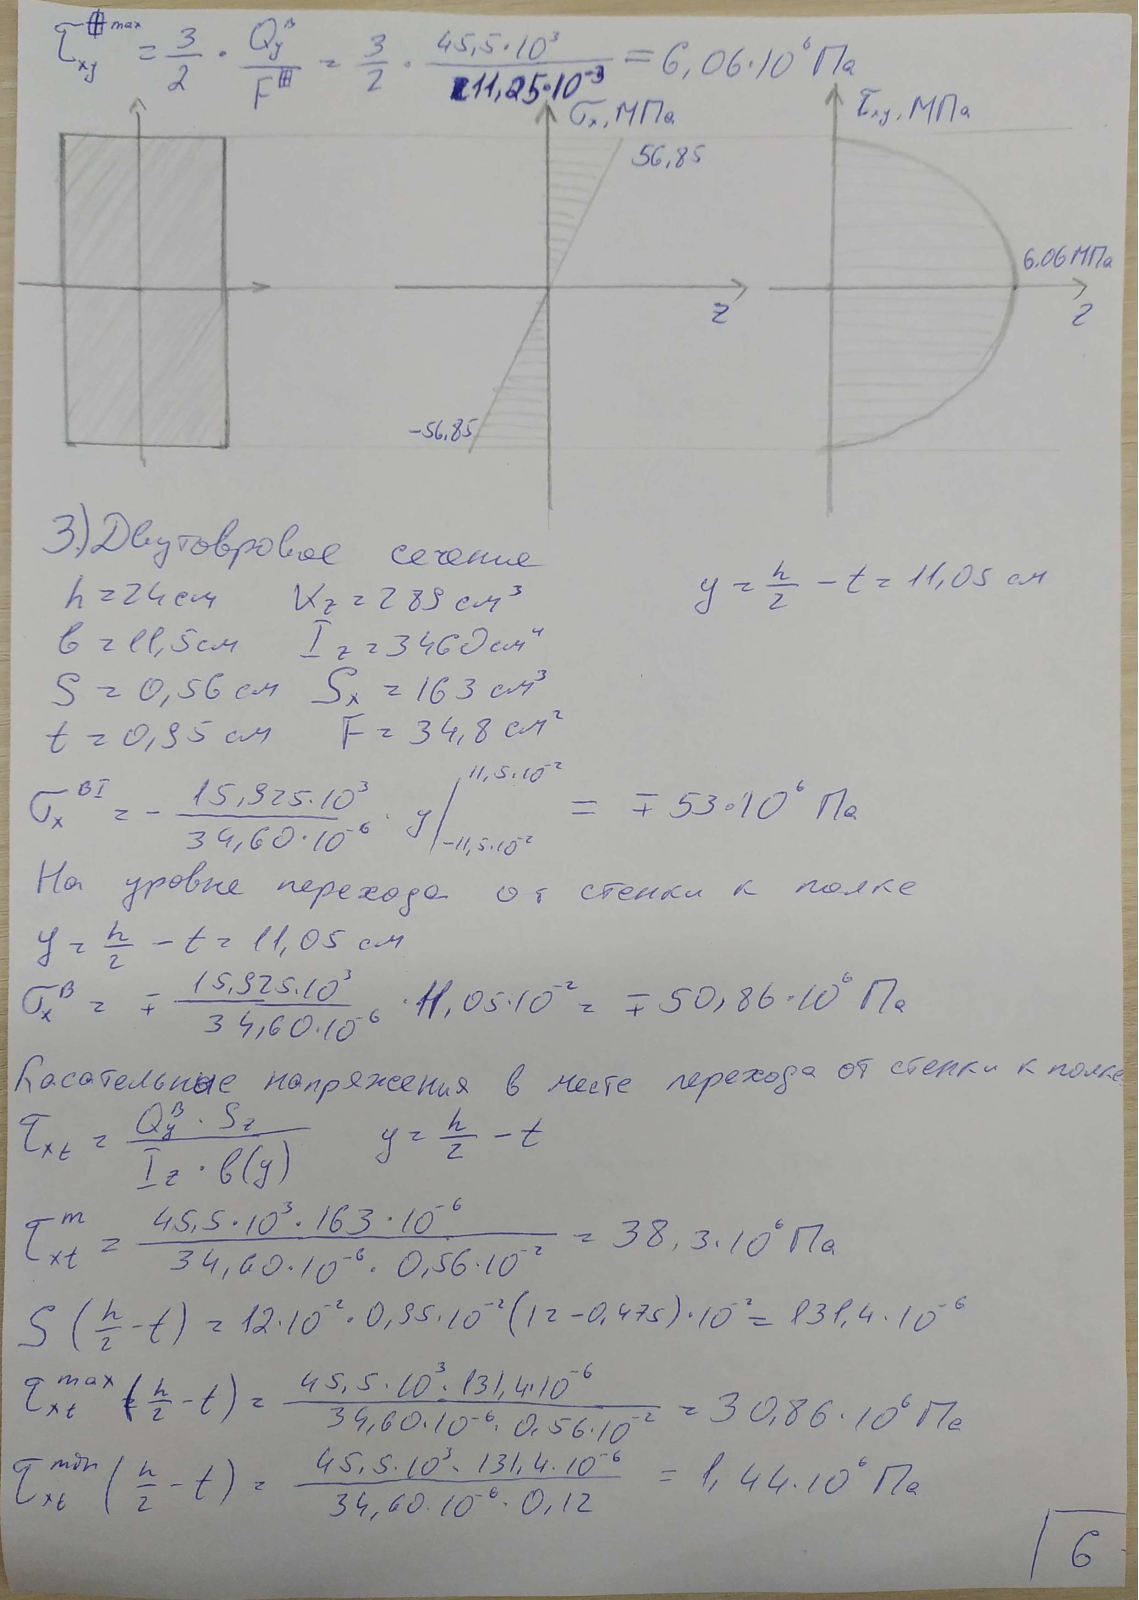 τ_xy^max = 3/2 · Q_y^в/F = 3/2 · 45,5·10³/11,25·10⁻³ = 6,06·10⁶ Па
σx, МПа
τxy, МПа
56,85
6.06 МПа
z
z
-56,85
3.) Двутовровое сечение
h = 24 см Wz = 289 см³ y = h/2 - t = 11,05 см
b = 11,5 см Iz = 3460 см⁴
S = 0,56 см Sx = 163 см³
t = 0,95 см F = 34,8 см²
σx^ВI = - 15,925·10³/34,60·10⁻⁶ · y |_{-11,5·10⁻²}^{11,5·10⁻²} = ∓53·10⁶ Па
На уровне перехода от стенки к полке
y = h/2 - t = 11,05 см
σx^В = ∓ 15,925·10³/34,60·10⁻⁶ · 11,05·10⁻² = ∓50,86·10⁶ Па
Касательные напряжения в месте перехода от стенки к полке
τxt = Qy^В · Sz/Iz · b(y) y = h/2 - t
τxt^m = 45,5·10³·163·10⁻⁶/34,60·10⁻⁶·0,56·10⁻² = 38,3·10⁶ Па
S(h/2 - t) = 12·10⁻²·0,95·10⁻²(12-0,475)·10⁻² = 131,4·10⁻⁶
τxt^max(h/2 - t) = 45,5·10³·131,4·10⁻⁶/34,60·10⁻⁶·0,56·10⁻² = 30,86·10⁶ Па
τxt^min(h/2 - t) = 45,5·10³·131,4·10⁻⁶/34,60·10⁻⁶·0,12 = 1,44·10⁶ Па
6